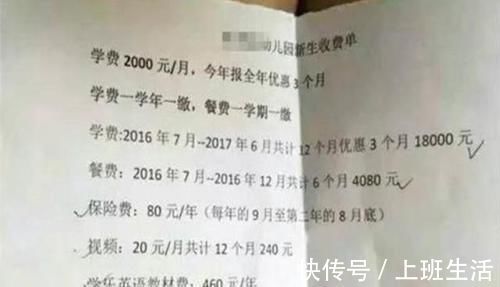 幼儿园新生收费单
学费 2000 元/月，今年报全年优惠 3 个月
学费一学年一缴，餐费一学期一缴
学费:2016 年 7 月--2017 年 6 月共计 12 个月优惠 3 个月 18000 元
餐费：2016 年 7 月--2016 年 12 月共计 6 个月 4080 元
保险费：80 元/年（每年的 9 月至第二年的 8 月底）
视频：20 元/月共计 12 个月 240 元
英语教材费：460 元/年
快传号 / 上班生活